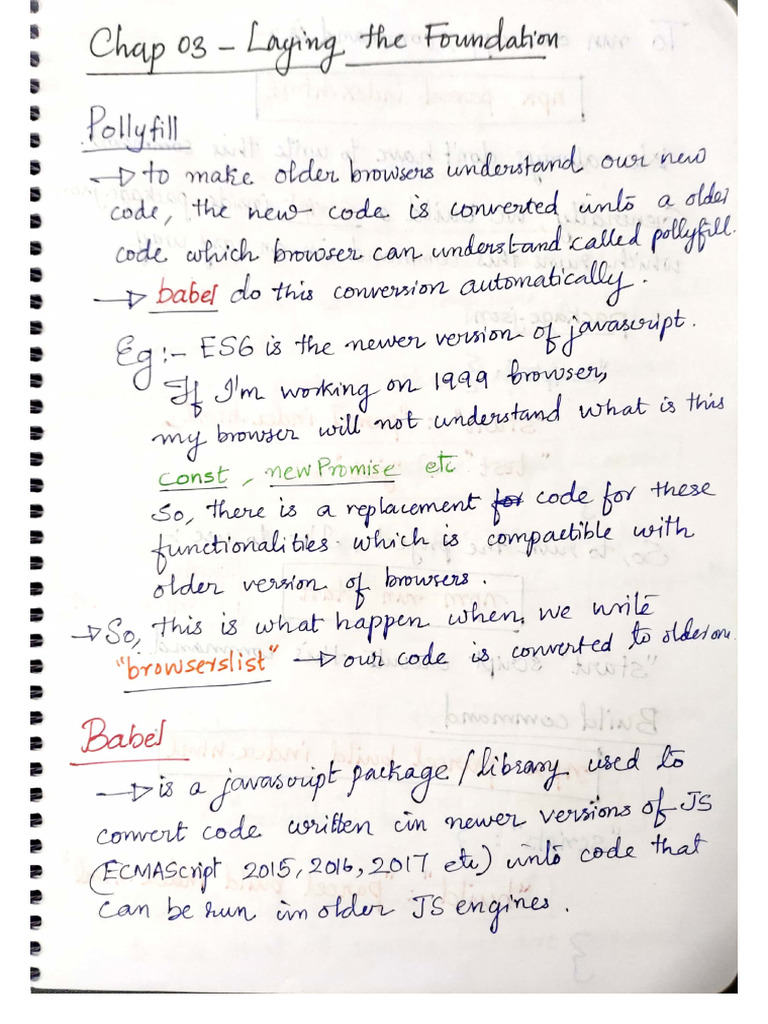 Chap 03 - Laying the Foundation
Pollyfill
→ to make older browsers understand our new
code, the new code is converted into a older
code which browser can understand called pollyfill.
→ babel do this conversion automatically.
Eg :- ES6 is the newer version of javascript.
If I'm working on 1999 browser,
my browser will not understand what is this
const, new Promise etc
So, there is a replacement for code for these
functionalities which is compactible with
older version of browsers.
→ So, this is what happen when we write
"browserslist" → our code is converted to older one.
Babel
→ is a javascript package/library used to
convert code written in newer versions of JS
(ECMAScript 2015, 2016, 2017 etc) into code that
can be run in older JS engines.